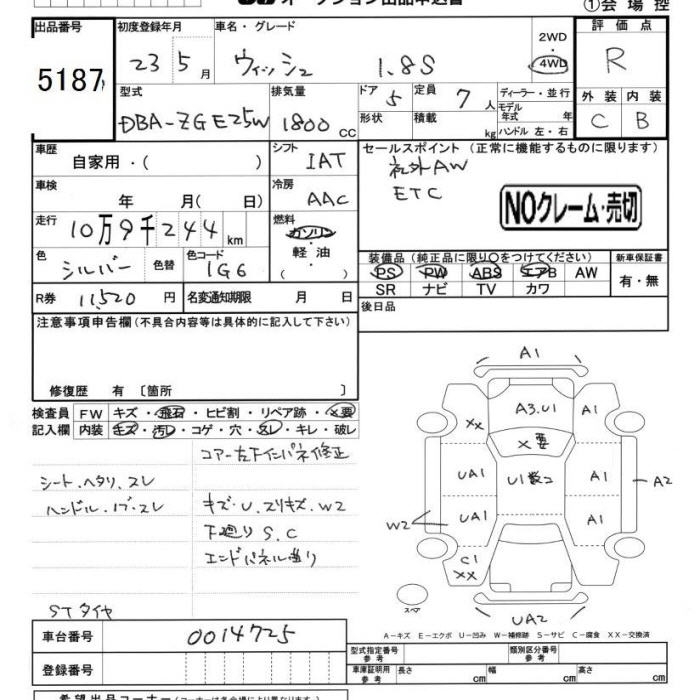 オークション出品申込書
①会場控
出品番号 初度登録年月 車名・グレード 2WD・4WD 評価点
5187 23 5月 ウィッシュ 1.8S R
型式 排気量 ドア 5 定員 7人 ディーラー・並行 外装 内装
DBA-ZGE25W 1800cc 形状 積載 kg モデル年式 年 ハンドル 左・右 C B
車歴 自家用・( ) シフト IAT セールスポイント(正常に機能するものに限ります)
社外AW
車検 年 月( 日) 冷房 AAC ETC
NOクレーム・売切
走行 10万9千244km 燃料 ガソリン・軽油( )
色 シルバー 色替 色コード 1G6
装備品(純正品に限り〇をつけてください) 新車保証書
PS PW ABS エアB AW 有・無
SR ナビ TV カワ
R券 11,520円 名変通知期限 月 日
後日品
注意事項申告欄(不具合内容等は具体的に記入して下さい)
修復歴 有〔箇所 〕
検査員 FW キズ・飛石・ヒビ割・リペア跡・×要
記入欄 内装 キズ・汚レ・コゲ・穴・スレ・キレ・破レ
コアー左下インパネ修正
シート.ヘタリ.スレ
ハンドル.ノブ.スレ キズ・U.スリキズ.W2
下廻りS.C
エンドパネル曲り
STタイヤ
A1
A3.U1
XX A1
×要
UA1 U1数コ A1 A2
W2 UA1 A1
C1
XX
スペア
UA2
A-キズ E-エクボ U-凹み W-補修跡 S-サビ C-腐食 XX-交換済
車台番号 0014725
型式指定番号 参考 類別区分番号 参考
登録番号 車庫証明用 参考 長さ cm 幅 cm 高さ cm
希望出品コーナー(コーナーは各会場により異なります)